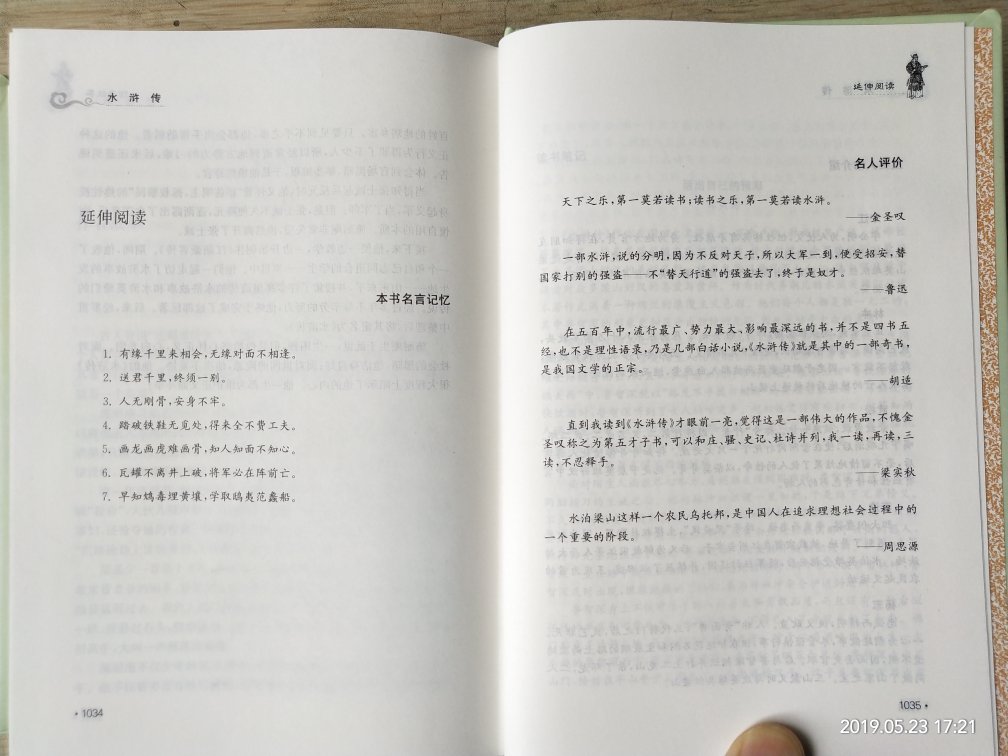 水 浒 传
延伸阅读
本书名言记忆
1. 有缘千里来相会,无缘对面不相逢。
2. 送君千里,终须一别。
3. 人无刚骨,安身不牢。
4. 踏破铁鞋无觅处,得来全不费工夫。
5. 画龙画虎难画骨,知人知面不知心。
6. 瓦罐不离井上破,将军必在阵前亡。
7. 早知鸩毒埋黄壤,学取鸱夷范蠡船。
· 1034
延伸阅读
名人评价
天下之乐,第一莫若读书;读书之乐,第一莫若读水浒。
——金圣叹
一部水浒,说的分明,因为不反对天子,所以大军一到,便受招安,替
国家打别的强盗——不“替天行道”的强盗去了,终于是奴才。
——鲁迅
在五百年中,流行最广、势力最大、影响最深远的书,并不是四书五
经,也不是理性语录,乃是几部白话小说,《水浒传》就是其中的一部奇书,
是我国文学的正宗。
——胡适
直到我读到《水浒传》才眼前一亮,觉得这是一部伟大的作品,不愧金
圣叹称之为第五才子书,可以和庄、骚、史记、杜诗并列,我一读,再读,三
读,不忍释手。
——梁实秋
水泊梁山这样一个农民乌托邦,是中国人在追求理想社会过程中的
一个重要的阶段。
——周思源
1035 ·
2019.05.23 17:21